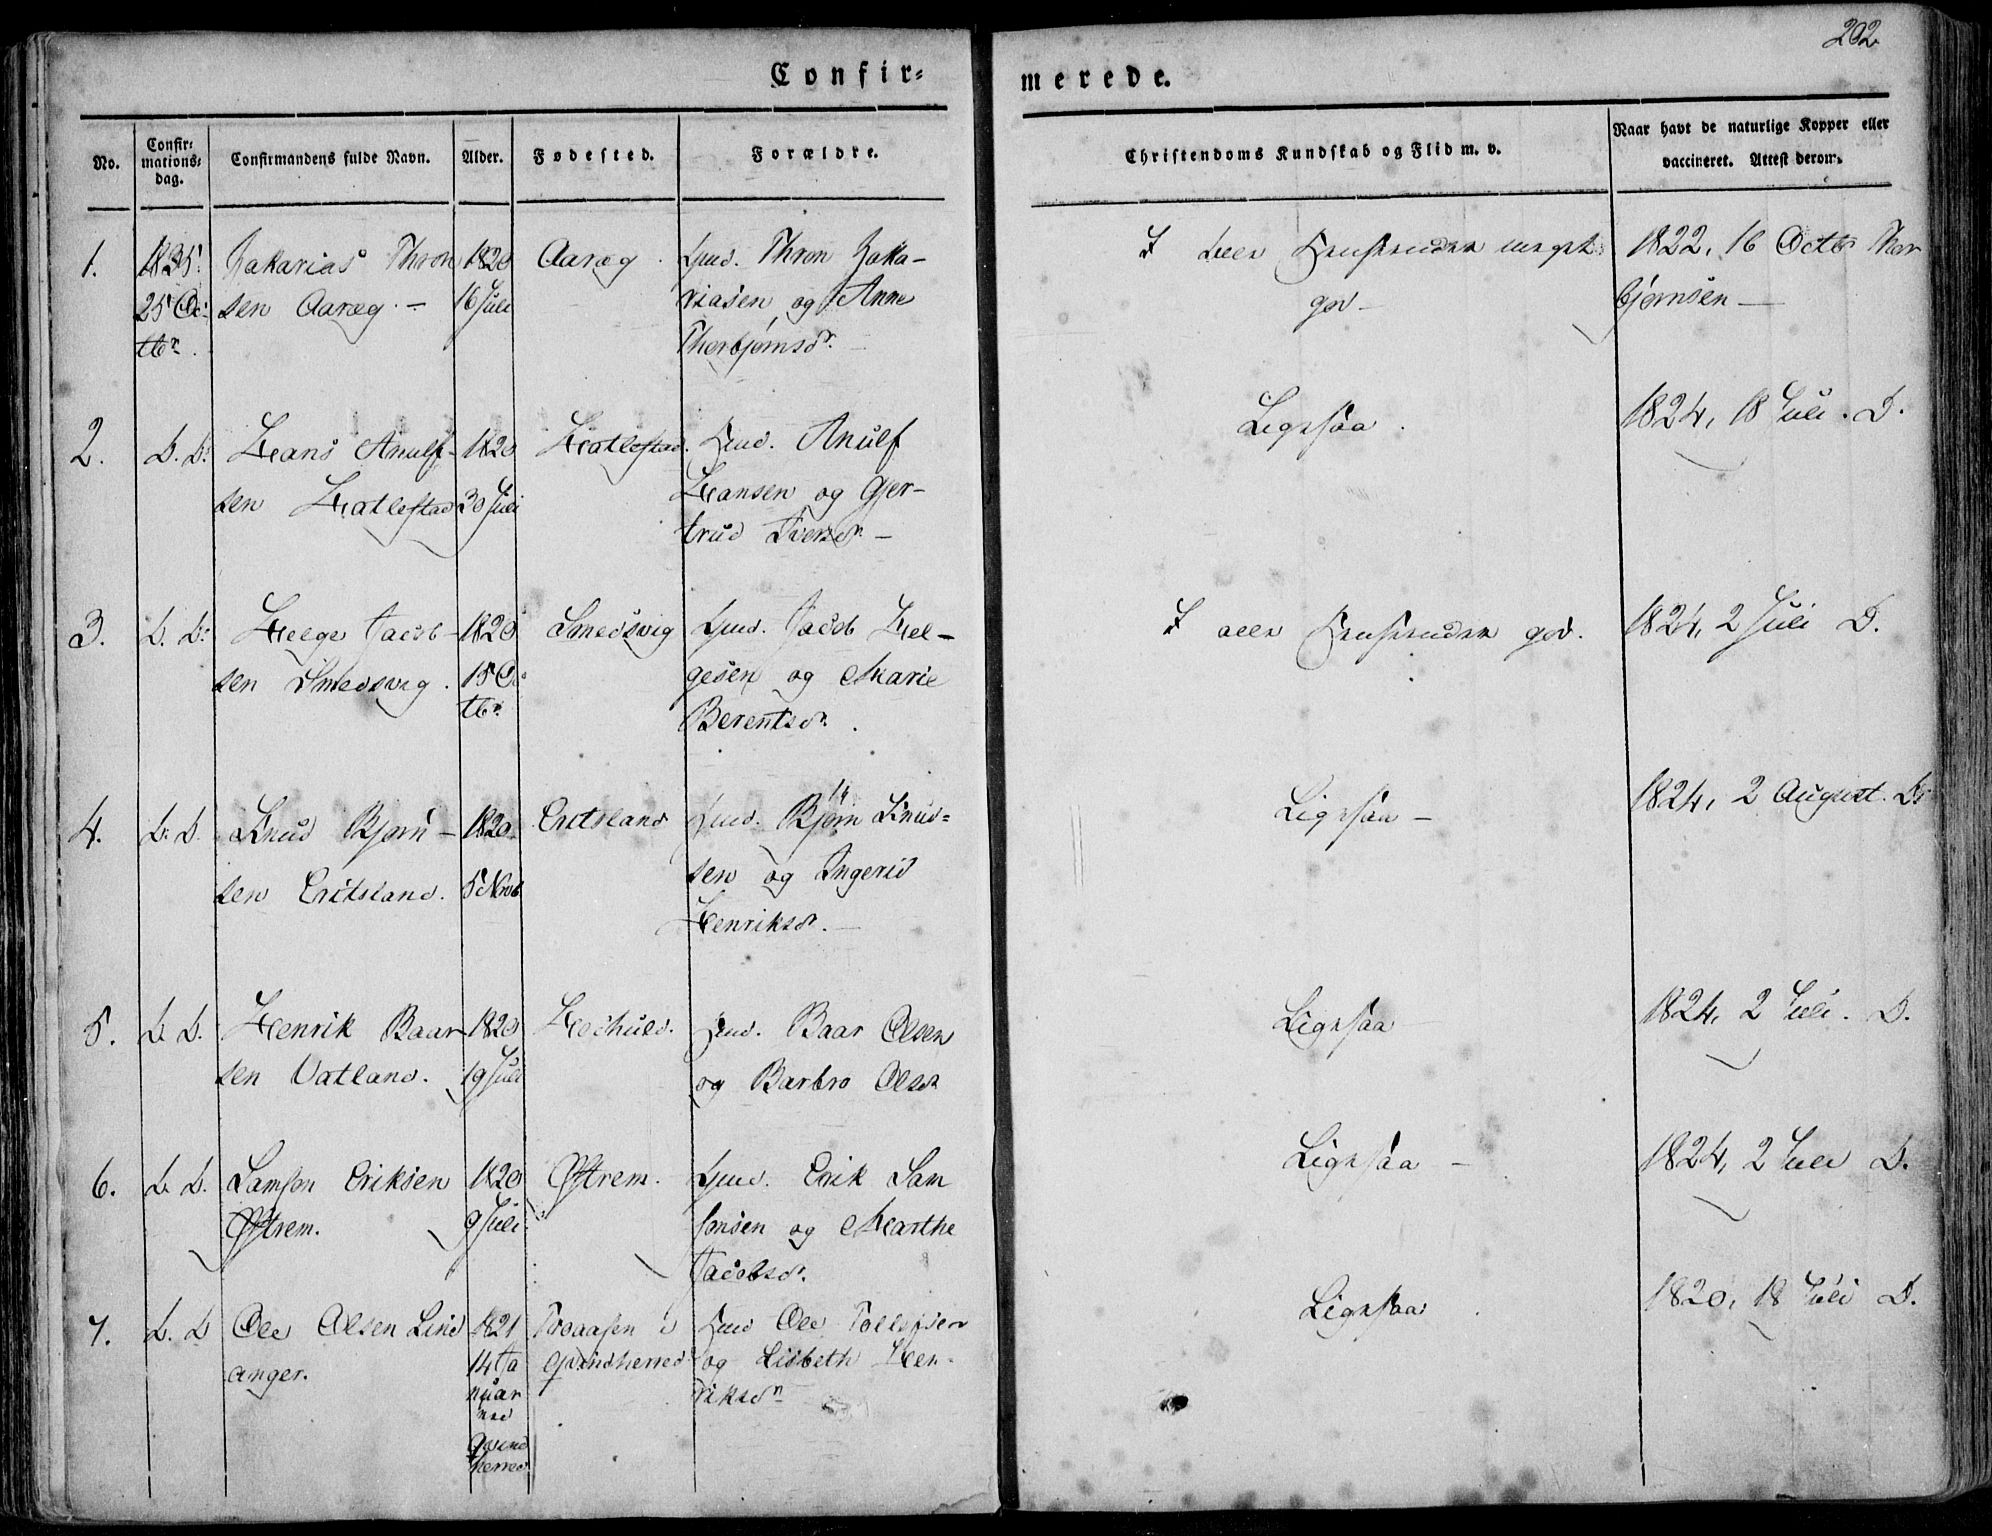 202
Confir=
merede.
No.
Confir=
mations=
dag.
Confirmandens fulde Navn.
Alder.
Fødested.
Forældre.
Christendoms Kundskab og Flid m. v.
Naar havt de naturlige Kopper eller
vaccineret. Attest derom.
1.
1835.
25 Oc
tbr.
Zakarias Thron
sen Aaræg. —
1820
16 Juli
Aaræg.
Thron Zaka-
riasen og Anne
Thorbjørnsdr.
I meget
god —
1822, 16 Octb. Thor
bjørnsen —
2.
D. D:
Hans Anulf-
sen Hatlestad
1820
30 Juli
Hatlestad.
Anulf
Hansen og Gjer-
trud Iversdr. —
Ligesaa.
1824, 18 Juli. D.
3.
D. D:
Helge Jacob-
sen Smedsvig.
1820
15 Oc
tbr.
Smedsvig
Jacob Hel-
gesen og Marie
Berentsdr.
I alle god.
1824, 2 Juli D.
4.
D. D.
Knud Bjørn-
sen Eritsland.
1820.
5 Novb
Eritsland
Bjørn Knud=
sen og Ingerid
Henriksdr. —
Ligesaa —
1824, 2 August. D.
5.
D. D.
Henrik Baar
sen Vatland.
1820
19 Juli
Baar Olsen
og Barbro Olsdr
Ligesaa
1824, 2 Juli. D.
6.
D. D.
Samson Eriksen
Østrem.
1820
9 Juli.
Østrem.
Erik Sam
sonsen og Marthe
Jacobsdr.
Ligesaa —
1824, 2 Juli D.
7.
D. D
Ole Olsen Lind
anger.
1821
14 Ja
nuar
Qvind
herred.
i
Qvindherred
Ole Tollefsen
og Lisbeth Hen-
riksdr
Ligesaa
1820, 18 Juli D.